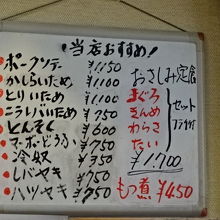 当店おすすめ!
ポークソテー ¥1,150
かしらいため ¥1,100
とりいため ¥1,100
ニラレバいため ¥750
とんそく ¥600
マーボどうふ ¥750
冷奴 ¥350
レバヤキ ¥750
ハツヤキ ¥750
おさしみ定食
まぐろ
きんめ
わらさ
たい
セット
¥1,700
もつ煮 ¥450